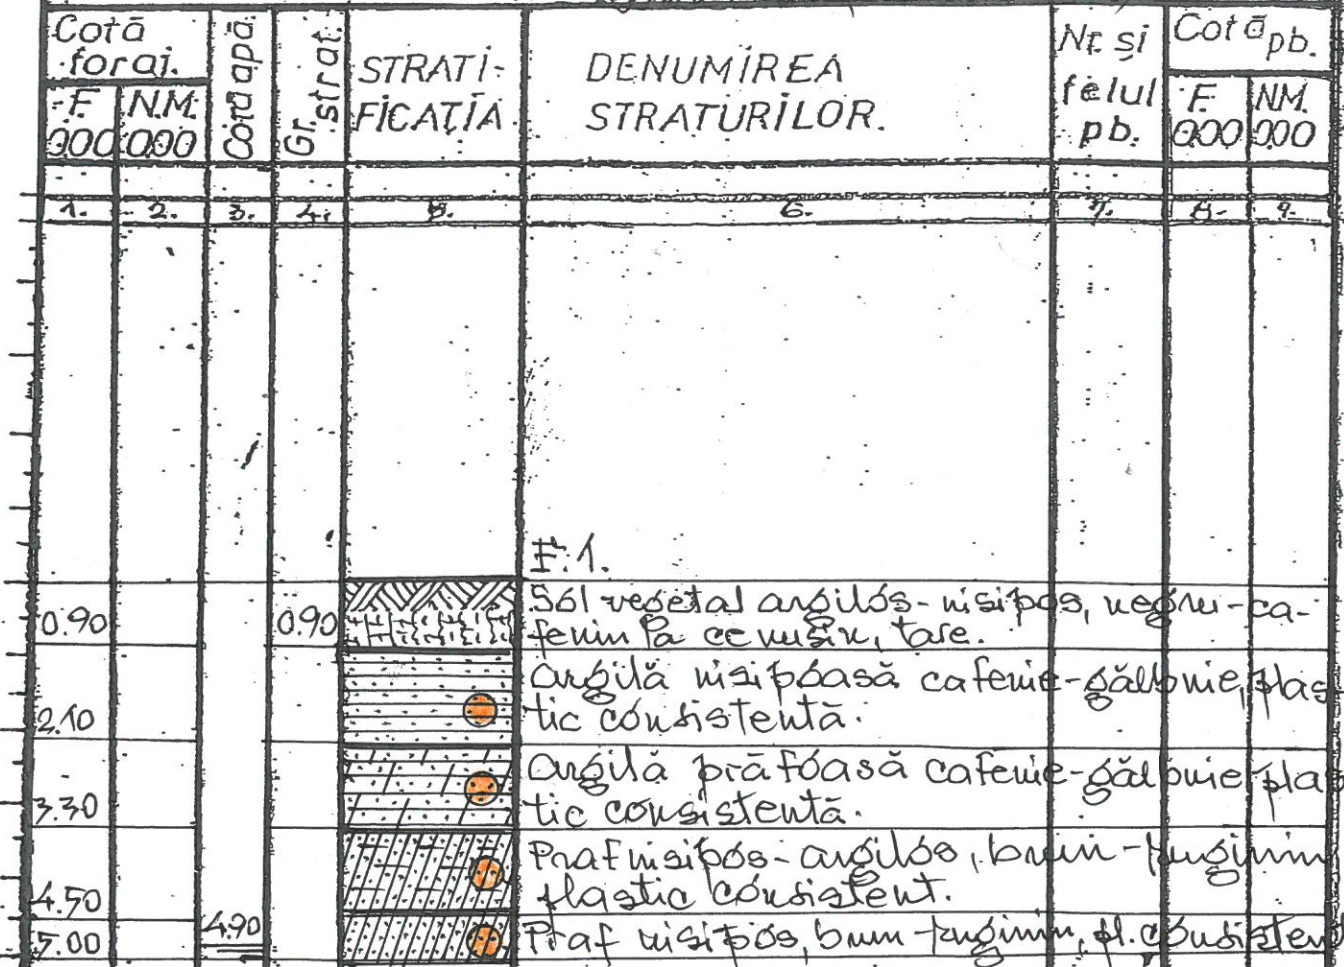 Cotă foraj.
F. 000
N.M. 000
Cotă apă
Gr. strat.
STRATI-
FICAȚIA
DENUMIREA
STRATURILOR.
Nr. și
felul
pb.
Cotă pb.
F. 000
NM. 000
1. 2. 3. 4. 5. 6. 7. 8. 9.
F.1.
0.90 0.90 Sol vegetal argilos-nisipos, negru-ca-
feniu la cenușiu, tare.
2.10 Argilă nisipoasă cafenie-gălbuie, plas
tic consistentă.
3.30 Argilă prăfoasă cafenie-gălbuie plas
tic consistentă.
4.50 Praf nisipos-argilos, brun-ruginiu
plastic consistent.
5.00 4.90 Praf nisipos, brun-ruginiu, pl. consisten